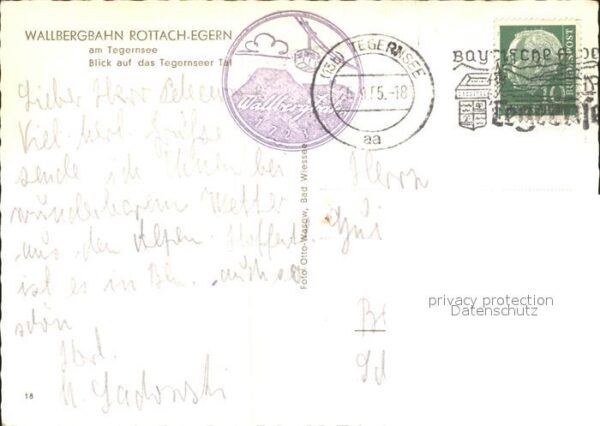 WALLBERGBAHN ROTTACH-EGERN
am Tegernsee
Blick auf das Tegernseer Tal
Wallbergbahn
1723
(13b) TEGERNSEE
.55.-18
aa
Bayrische
Tegernse
DEUTSCHE BUNDESPOST
10
Lieber Herr
Viel herzl. Grüße
sende ich Ihnen bei
wunderbarem Wetter
aus den Alpen. Hoffentl.
ist es in Bln. auch so
schön
Herzl.
Herrn
Foto Otto-Wasow, Bad Wiessee
privacy protection
Datenschutz
18